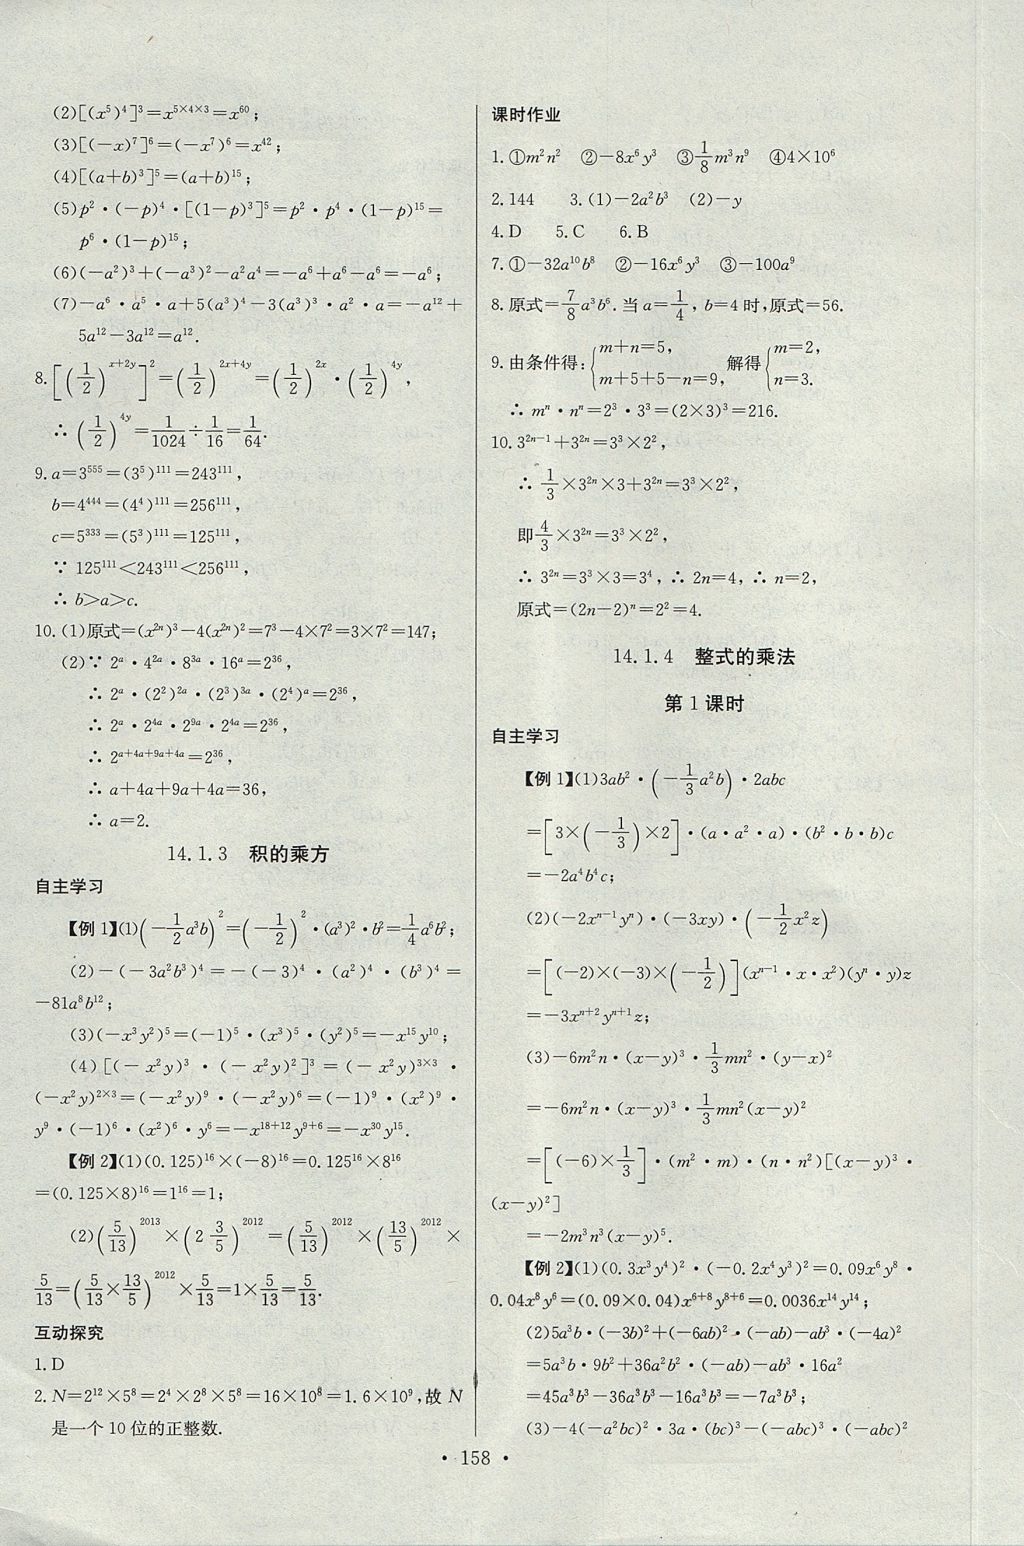 (2)[(x⁵)⁴]³=x^{5×4×3}=x⁶⁰;
(3)[(-x)⁷]⁶=(-x⁷)⁶=x⁴²;
(4)[(a+b)³]⁵=(a+b)¹⁵;
(5)p²·(-p)⁴·[(1-p)³]⁵=p²·p⁴·(1-p)¹⁵=
p⁶·(1-p)¹⁵;
(6)(-a²)³+(-a³)²-a²a⁴=-a⁶+a⁶-a⁶=-a⁶;
(7)-a⁶·a⁵·a+5(a³)⁴-3(a³)³·a²·a=-a¹²+
5a¹²-3a¹²=a¹².
8.[(1/2)^{x+2y}]²=(1/2)^{2x+4y}=(1/2)^{2x}·(1/2)^{4y},
∴(1/2)^{4y}=1/1024÷1/16=1/64.
9.a=3⁵⁵⁵=(3⁵)¹¹¹=243¹¹¹,
b=4⁴⁴⁴=(4⁴)¹¹¹=256¹¹¹,
c=5³³³=(5³)¹¹¹=125¹¹¹,
∵125¹¹¹<243¹¹¹<256¹¹¹,
∴b>a>c.
10.(1)原式=(x^{2n})³-4(x^{2n})²=7³-4×7²=3×7²=147;
(2)∵2^{a}·4^{2a}·8^{3a}·16^{a}=2³⁶,
∴2^{a}·(2²)^{2a}·(2³)^{3a}·(2⁴)^{a}=2³⁶,
∴2^{a}·2^{4a}·2^{9a}·2^{4a}=2³⁶,
∴2^{a+4a+9a+4a}=2³⁶,
∴a+4a+9a+4a=36,
∴a=2.
14.1.3 积的乘方
自主学习
【例1】(1)(-1/2a³b)²=(-1/2)²·(a³)²·b²=1/4a⁶b²;
(2)-(-3a²b³)⁴=-(-3)⁴·(a²)⁴·(b³)⁴=
-81a⁸b¹²;
(3)(-x³y²)⁵=(-1)⁵·(x³)⁵·(y²)⁵=-x¹⁵y¹⁰;
(4)[(-x²y)³·(-x²y)²]³=(-x²y)^{3×3}·
(-x²y)^{2×3}=(-x²y)⁹·(-x²y)⁶=(-1)⁹·(x²)⁹·
y⁹·(-1)⁶·(x²)⁶·y⁶=-x^{18+12}y^{9+6}=-x³⁰y¹⁵.
【例2】(1)(0.125)¹⁶×(-8)¹⁶=0.125¹⁶×8¹⁶
=(0.125×8)¹⁶=1¹⁶=1;
(2)(5/13)²⁰¹³×(2 3/5)²⁰¹²=(5/13)²⁰¹²×(13/5)²⁰¹²×
5/13=(5/13×13/5)²⁰¹²×5/13=1×5/13=5/13.
互动探究
1.D
2.N=2¹²×5⁸=2⁴×2⁸×5⁸=16×10⁸=1.6×10⁹,故N
是一个10位的正整数.
课时作业
1.①m²n² ②-8x⁶y³ ③1/8m³n⁹ ④4×10⁶
2.144 3.(1)-2a²b³ (2)-y
4.D 5.C 6.B
7.①-32a¹⁰b⁸ ②-16x⁶y³ ③-100a⁹
8.原式=7/8a³b⁶.当a=1/4,b=4时,原式=56.
9.由条件得:{m+n=5, m+5+5-n=9, 解得{m=2, n=3.
∴mⁿ·nⁿ=2³·3³=(2×3)³=216.
10.3^{2n-1}+3^{2n}=3³×2²,
∴1/3×3^{2n}×3+3^{2n}=3³×2²,
即4/3×3^{2n}=3³×2²,
∴3^{2n}=3³×3=3⁴,∴2n=4,∴n=2,
原式=(2n-2)ⁿ=2²=4.
14.1.4 整式的乘法
第1课时
自主学习
【例1】(1)3ab²·(-1/3a²b)·2abc
=[3×(-1/3)×2]·(a·a²·a)·(b²·b·b)c
=-2a⁴b⁴c;
(2)(-2x^{n-1}yⁿ)·(-3xy)·(-1/2x²z)
=[(-2)×(-3)×(-1/2)](x^{n-1}·x·x²)(yⁿ·y)z
=-3x^{n+2}y^{n+1}z;
(3)-6m²n·(x-y)³·1/3mn²·(y-x)²
=-6m²n·(x-y)³·1/3mn²(x-y)²
=[(-6)×1/3]·(m²·m)·(n·n²)[(x-y)³·
(x-y)²]
=-2m³n³(x-y)⁵.
【例2】(1)(0.3x³y⁴)²·(-0.2x⁴y³)²=0.09x⁶y⁸·
0.04x⁸y⁶=(0.09×0.04)x^{6+8}y^{8+6}=0.0036x¹⁴y¹⁴;
(2)5a³b·(-3b)²+(-6ab)²·(-ab)-ab³·(-4a)²
=5a³b·9b²+36a²b²·(-ab)-ab³·16a²
=45a³b³-36a³b³-16a³b³=-7a³b³;
(3)-4(-a²bc)²·3a·(bc)³-(-abc)³·(-abc)²
·158·